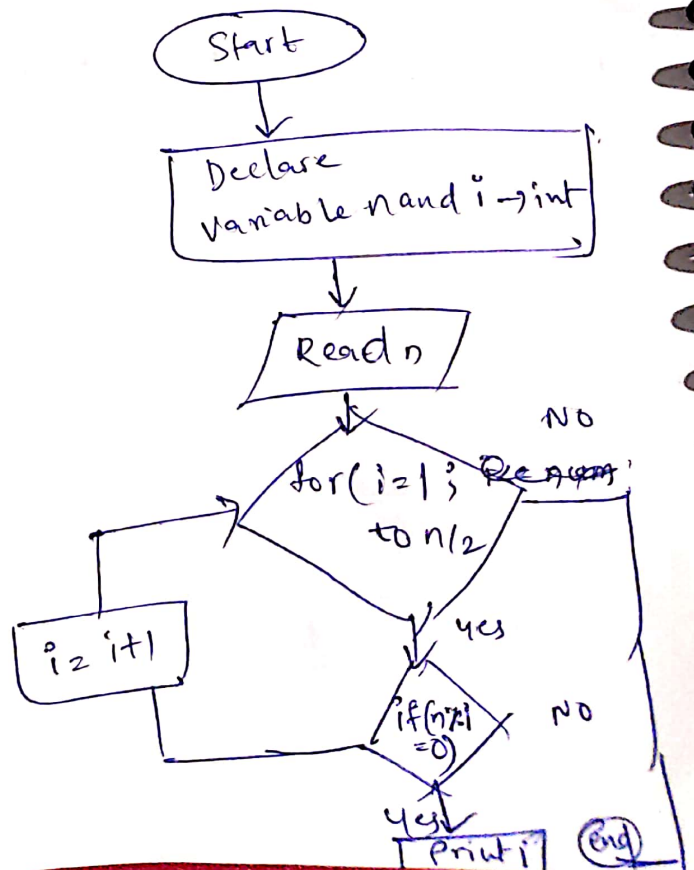 Start
Declare
variable n and i → int
Read n
NO
for(i=1;
to n/2
yes
i = i+1
if(n%i
=0)
NO
yes
Print i
end